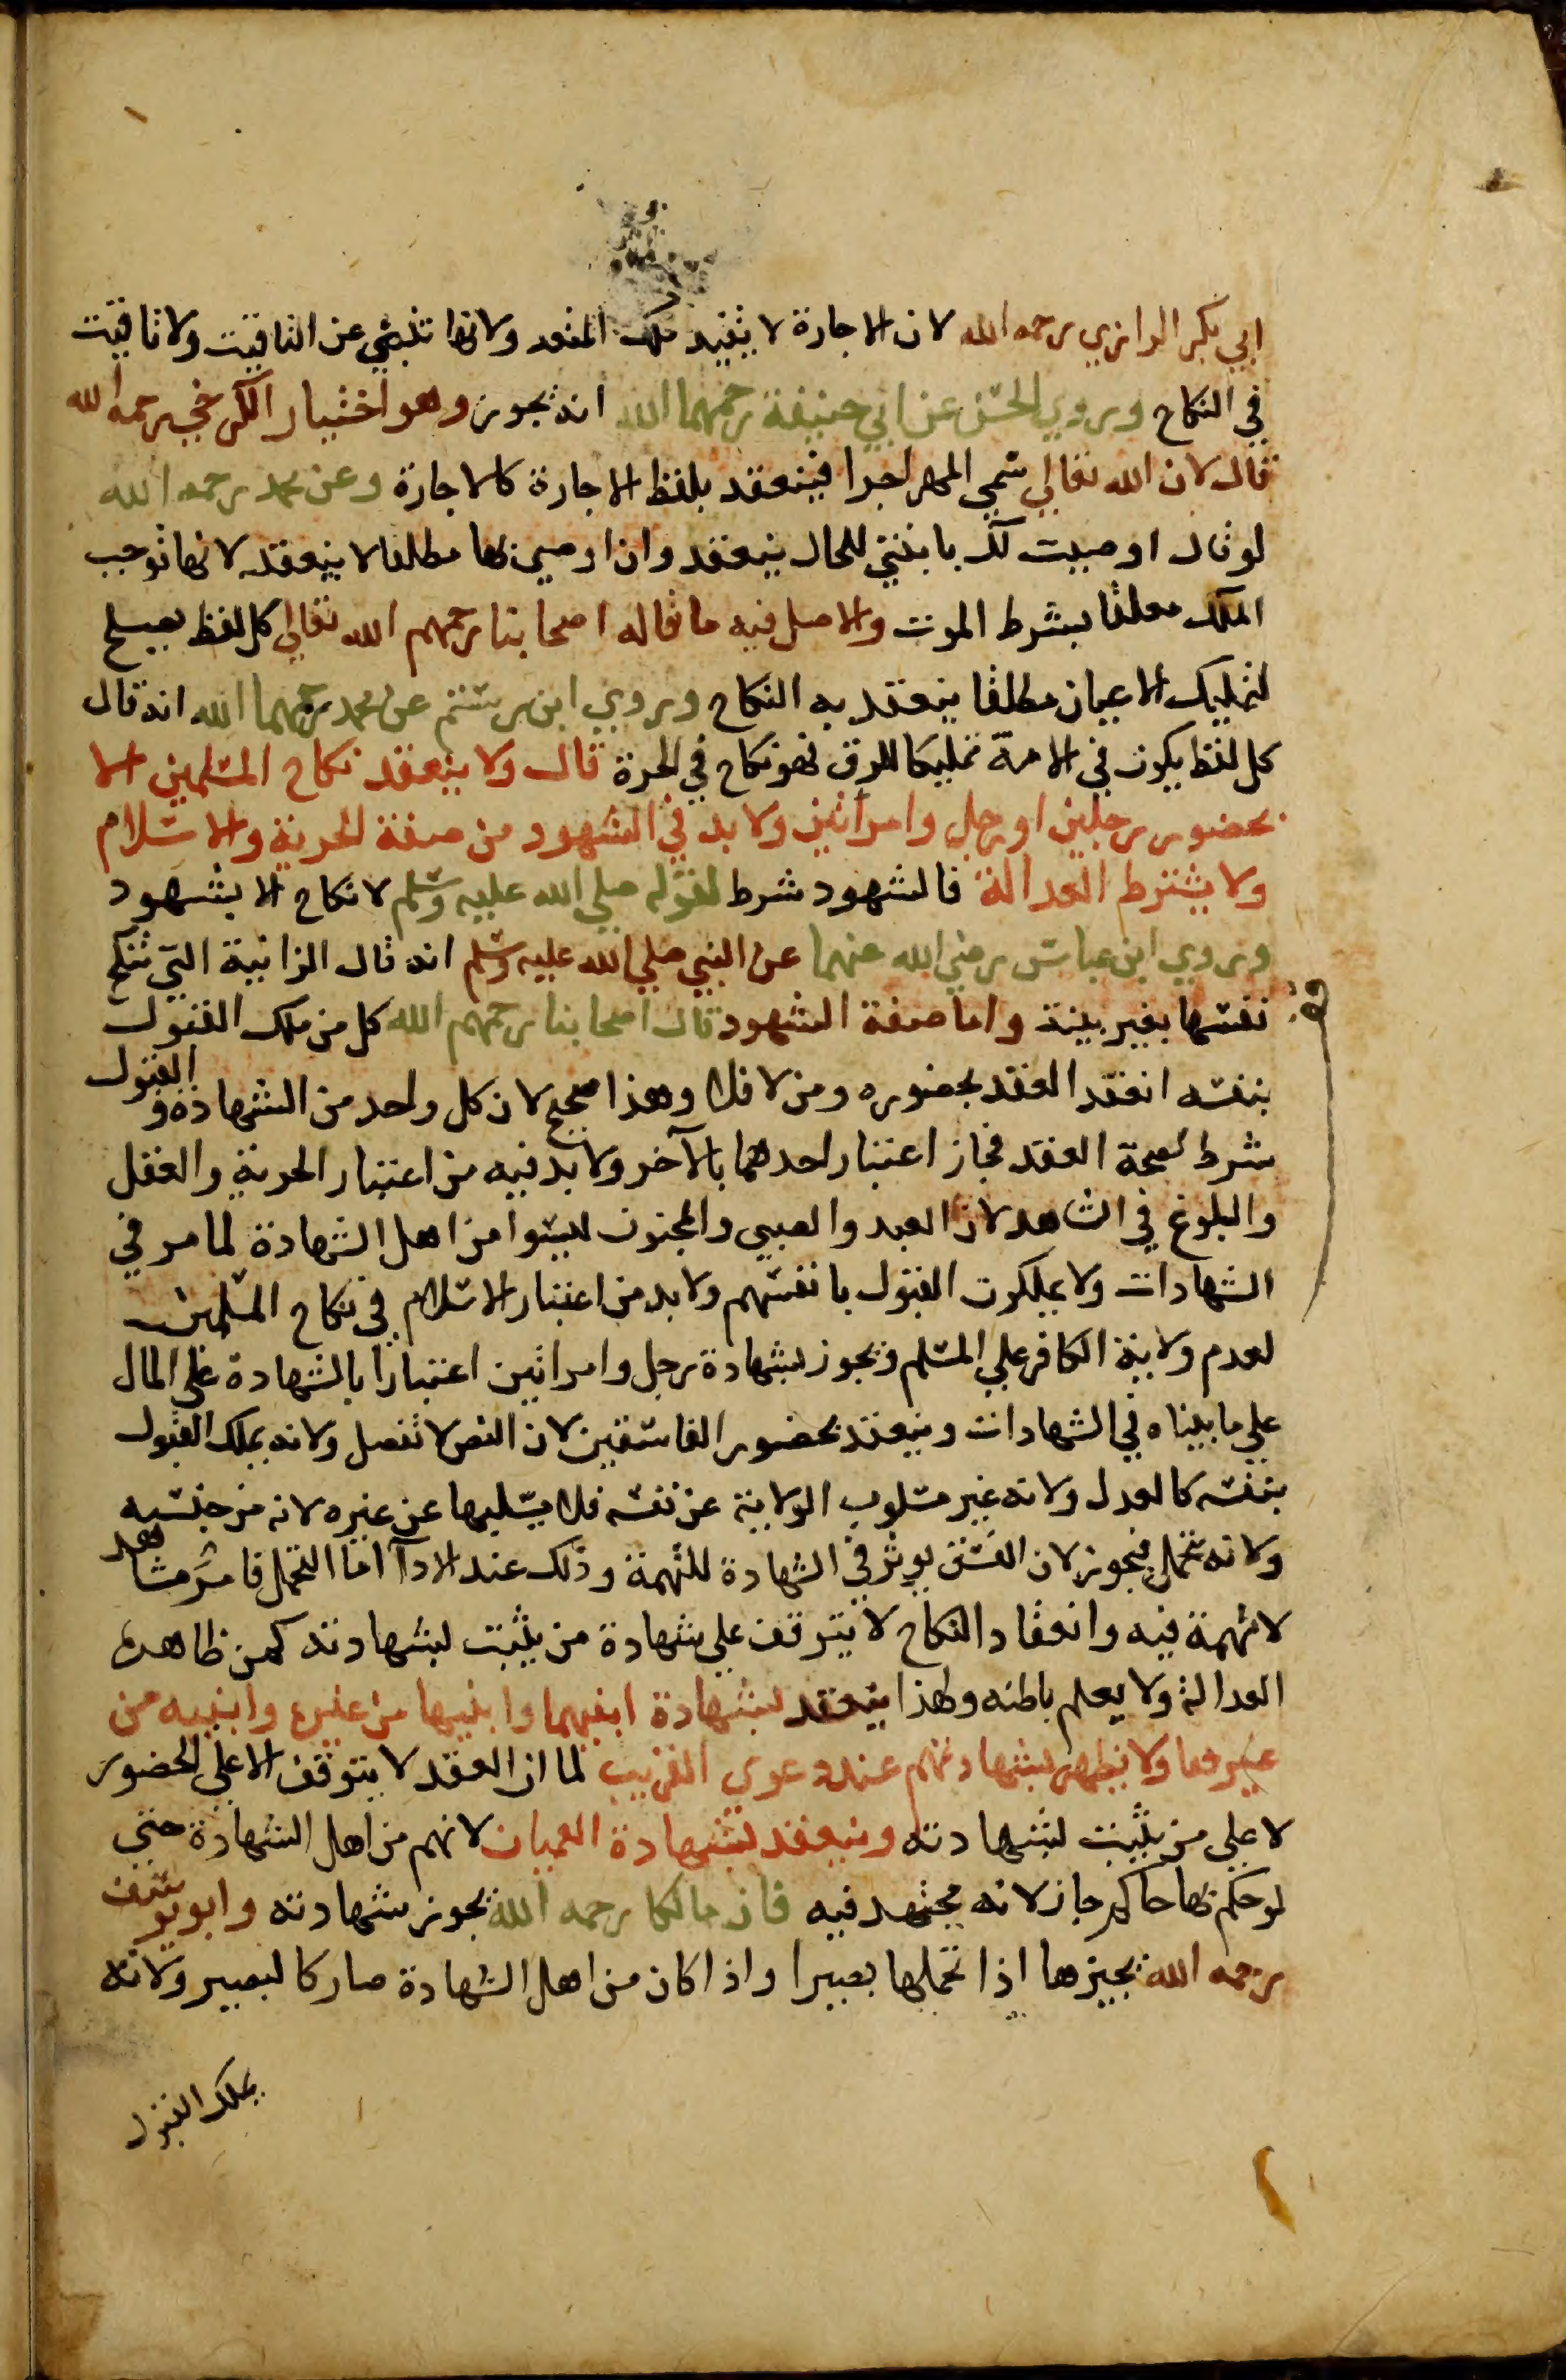 ابي بكر الرازي رحمه الله لان الاجارة لا يفيد ملك المتعه ولانها تنبئ عن التاقيت ولا تاقيت
في النكاح وروي الحسن عن ابي حنيفة رحمهما الله انه يجوز وهو اختيار الكرخي رحمه الله
قال لان الله تعالي سمي المهر اجرا فينعقد بلفظ الاجارة كالاجارة وعن محمد رحمه الله
لو قال اوصيت لك بابنتي للحال ينعقد وان اوصي بها مطلقا لا ينعقد لانها توجب
الملك معلقا بشرط الموت والاصل فيه ما قاله اصحابنا رحمهم الله تعالي كل لفظ يصلح
لتمليك الاعيان مطلقا ينعقد به النكاح وروي ابن رستم عن محمد رحمهما الله انه قال
كل لفظ يكون في الامة تمليكا للرق فهو نكاح في الحرة قال ولا ينعقد نكاح المسلمين الا
بحضور رجلين او رجل وامراتين ولا بد في الشهود من صفة الحرية والاسلام
ولا يشترط العدالة فالشهود شرط لقوله صلي الله عليه وسلم لا نكاح الا بشهود
وروي ابن عباس رضي الله عنهما عن النبي صلي الله عليه وسلم انه قال الزانية التي تنكح
نفسها بغير بينة واما صفة الشهود قال اصحابنا رحمهم الله كل من ملك القبول
بنفسه انعقد العقد بحضوره ومن لا فلا وهذا صحيح لان كل واحد من الشهادة والقبول
شرط لصحة العقد فجاز اعتبار احدهما بالآخر ولا بد فيه من اعتبار الحرية والعقل
والبلوغ في الشاهد لان العبد والصبي والمجنون ليسوا من اهل الشهادة لما مر في
الشهادات ولا يملكون القبول بانفسهم ولا بد من اعتبار الاسلام في نكاح المسلمين
لعدم ولاية الكافر علي المسلم ويجوز بشهادة رجل وامراتين اعتبارا بالشهادة علي المال
علي ما بيناه في الشهادات وينعقد بحضور الفاسقين لان النص لا تفصل ولانه يملك القبول
بنفسه كالعدل ولانه غير مسلوب الولاية عن نفسه فلا يسلبها عن غيره لانه من جنسه
ولانه تحمل فيجوز لان الفسق يوثر في الشهادة للتهمة وذلك عند الادآ اما التحمل فامر مشاهد
لا تهمة فيه وانعقاد النكاح لا يتوقف علي شهادة من يثبت بشهادته كمن ظاهره
العدالة ولا يعلم باطنه ولهذا ينعقد بشهادة ابنيهما وابنيها من غيره وابنيه من
غيرها ولا يظهر بشهادتهم عند دعوي القريب لما ان العقد لا يتوقف الا علي الحضور
لا علي من يثبت بشهادته وينعقد بشهادة العميان لانهم من اهل الشهادة حتي
لو حكم بها حاكم جاز لانه مجتهد فيه فان مالكا رحمه الله يجوز شهادته وابو يوسف
رحمه الله يجيزها اذا تحملها بصيرا واذا كان من اهل الشهادة صار كالبصير ولانه
يملك القبول